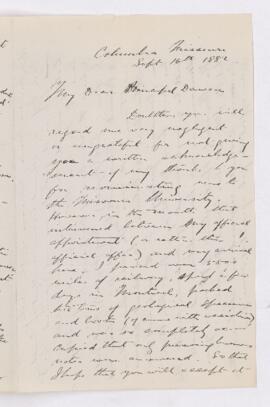 Columbia Missouri
Sept 16th 1882
My Dear Principal Dawson
Doubtless you will
regard me very negligent
or ungrateful for not giving
you a written acknowledge-
ment of my thanks to you
for recommending me to
the Missouri University.
However in the month that
intervened between my official
appointment (or rather the
official offer) and my arrival
here. I journeyed over 3500
miles of railway, spent a few
days in Montreal, packed
six tons of geological specimens
and books
and was so completely oc-
cupied that only pressing business
notes were answered. So that
I hope that you will accept it